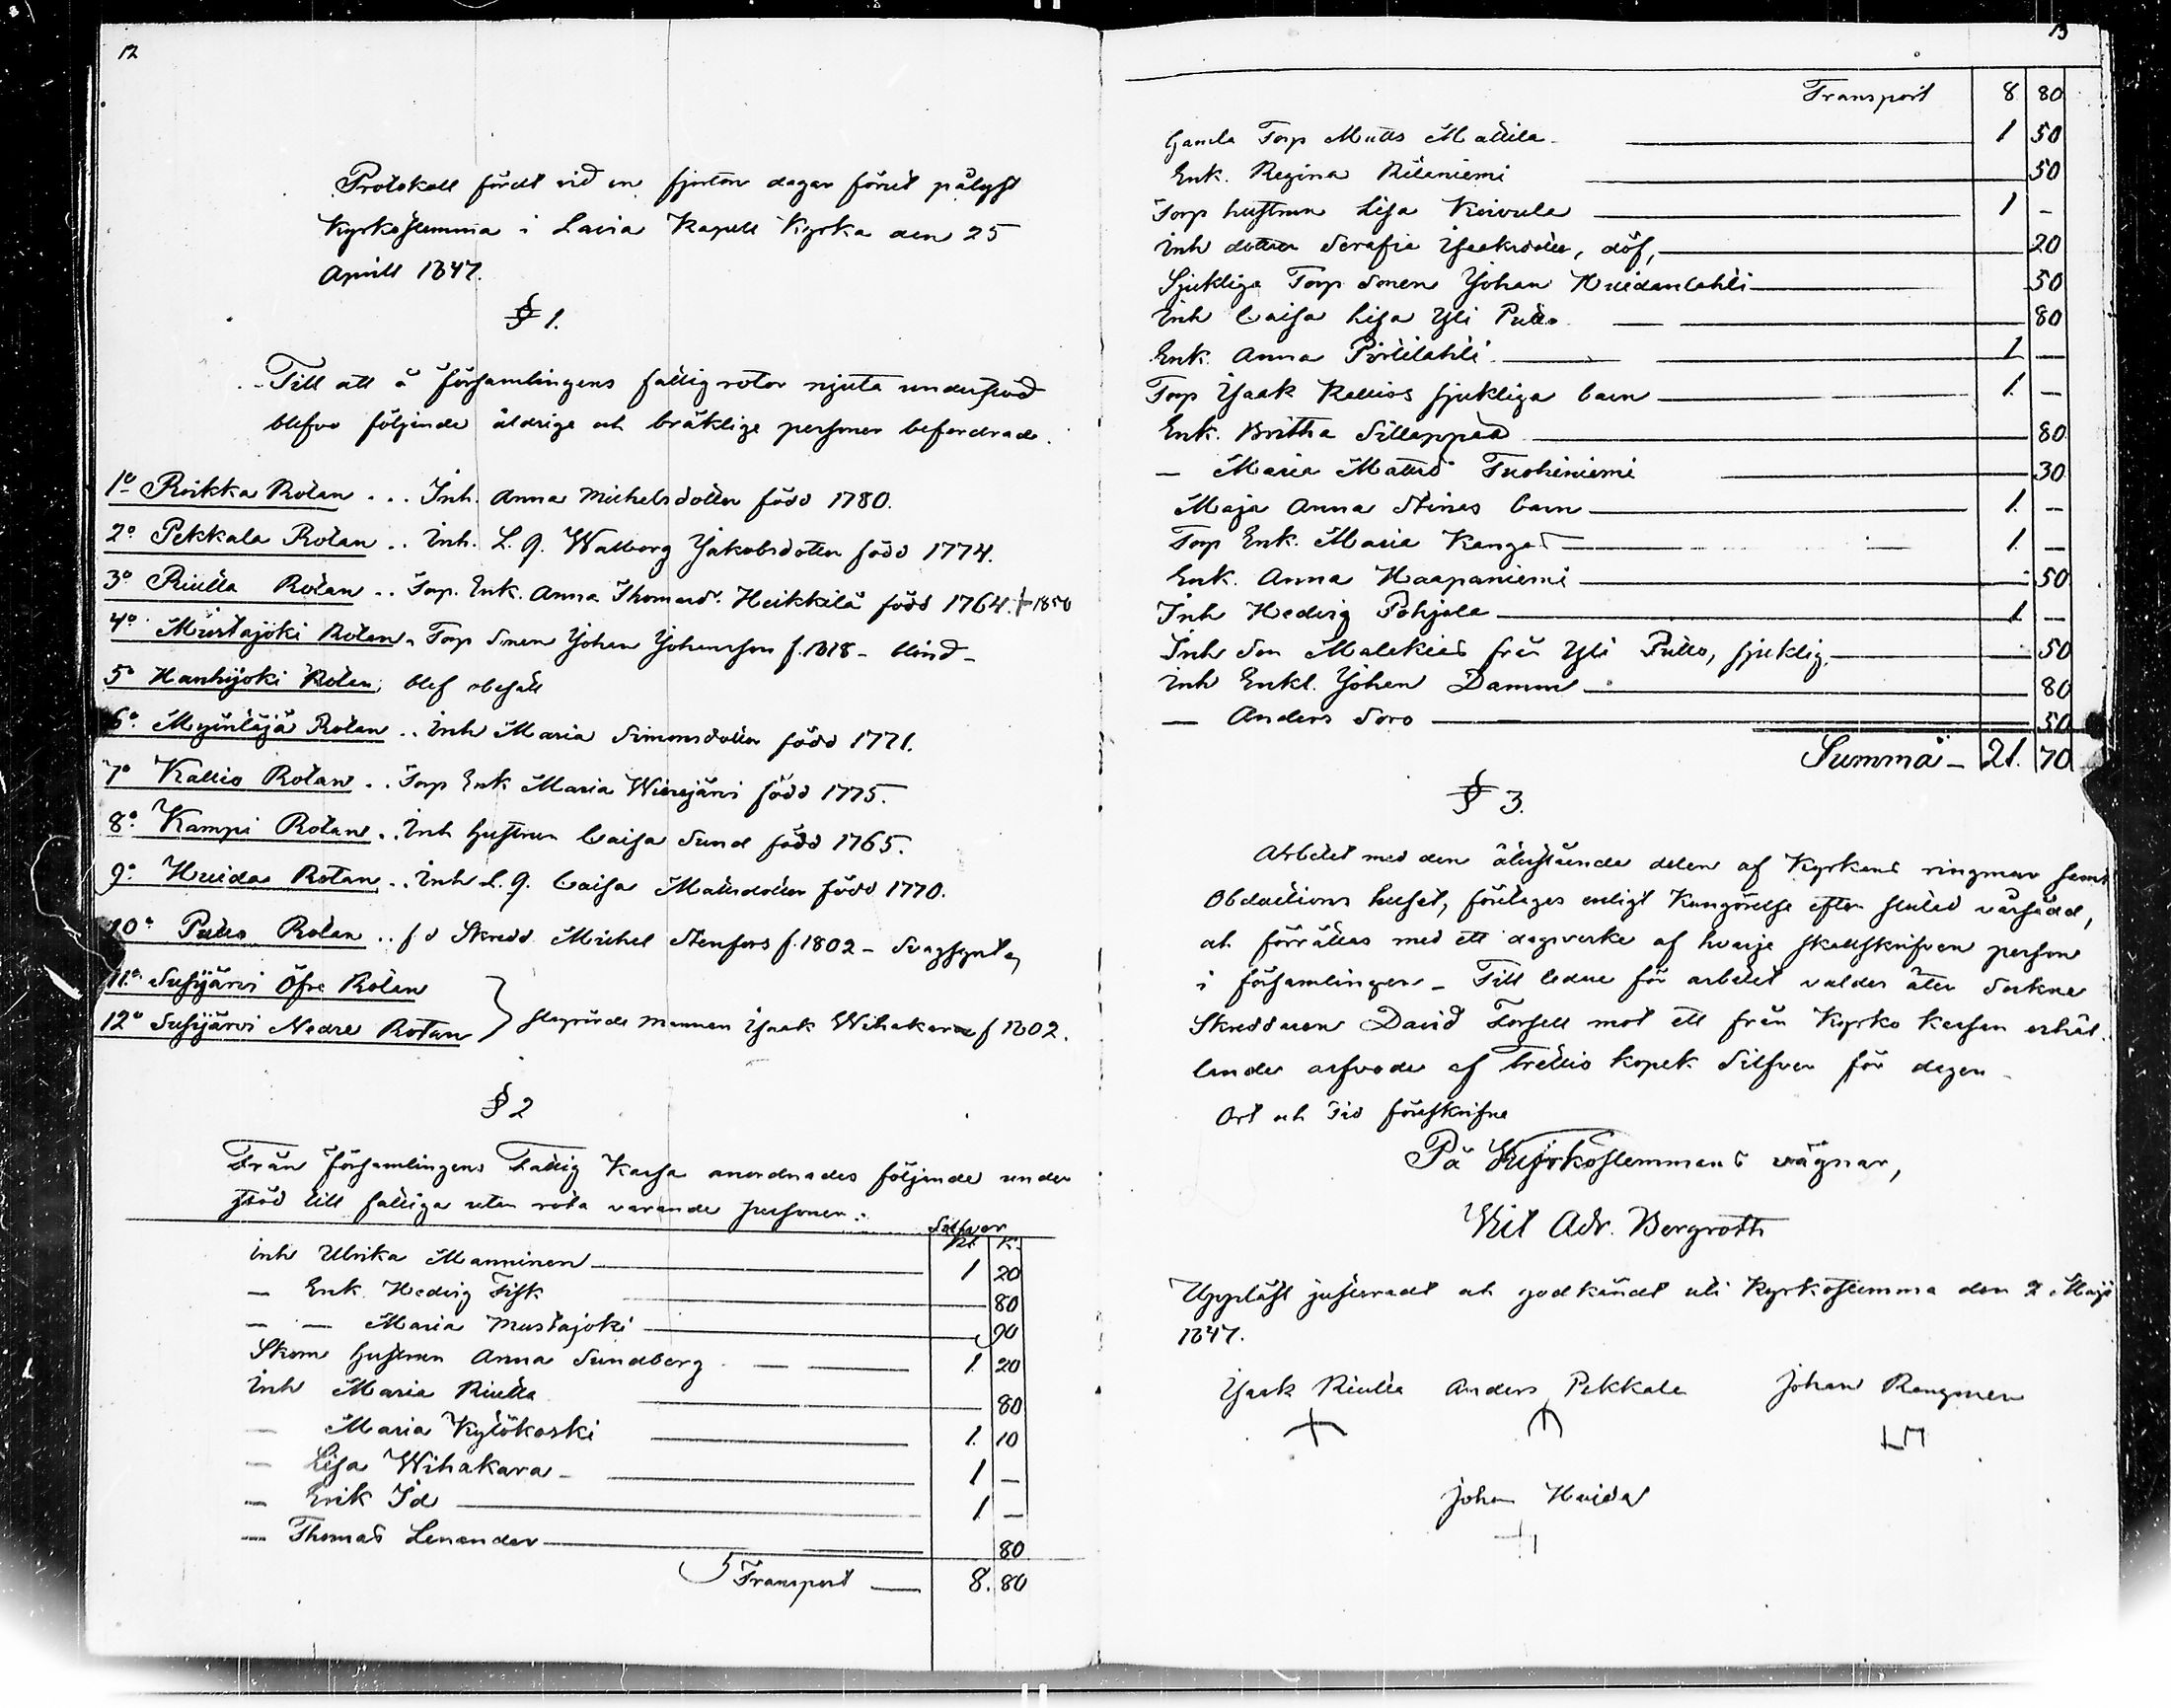 12
Protokoll fördt vid en fjorton dagar förut pålyst
Kyrkostemma i Lavia Kapell Kyrka den 25
Aprill 1847.
§ 1.
Till att å församlingens fattig rotor njuta understöd
blefvo följande åldrige och bräklige personer befordrade.
1o Riikka Rotan ... Inh. Anna Michelsdotter född 1780.
2o Pekkala Rotan .. Inh. L. g. Walborg Jakobsdotter född 1774.
3o Riutta Rotan .. Torp. Enk. Anna Thomasd. Heikkilä född 1764. + 1850
4o Mustajoki Rotan. Torp Sonen Johan Johansson f. 1818 - blind -
5o Hanhijoki Rotan, blef obesatt
6o Myöntäjä Rotan .. Inh Maria Simonsdotter född 1771.
7o Kallio Rotan .. Torp Enk Maria Wierjärvi född 1775.
8o Kampi Rotan .. Inh hustrun Caisa Sund född 1765.
9o Huida Rotan .. Inh L. g. Caisa Mattsdotter född 1770.
10o Putto Rotan .. f d Skredd. Michel Stenfors f. 1802 - Svagsynt,
11o Susijärvi Öfre Rotan
12o Susijärvi Nedre Rotan } slagrörde mannen Isaak Wihakara f 1802.
§ 2
Från församlingens Fattig Kassa anordnades följande under
stöd till fattiga utan rota varande personer:
Silfver
Rb. K.
inh Ulrika Manninen 1 20
— Enk. Hedvig Fisk 80
— — Maria Mustajoki 90
Skom hustrun Anna Sundberg 1. 20
Inh Maria Riutta 80
— Maria Kylökoski 1. 10
— Lisa Wihakara - 1 —
— Erik Id 1 —
— Thomas Lenander 80
Transport 8. 80
13
Transport 8 80
Gamla Torp Matts Mattila 1 50
Enk. Regina Riitaniemi 50
Torp hustrun Lisa Koivula 1 -
inh dotter Serafia Isaksdotter, döf, 20
Sjukliga Torp Sonen Johan Huidanlahti 50
Inh Caisa Lisa Yli Putto 80
Enk. Anna Pörtilahti 1 —
Torp Isaak Kallios sjukliga barn 1. —
Enk. Britha Sillanpää 80
— Maria Mattsd Tuohiniemi 30
Maja Anna Stinas barn 1. —
Torp Enk. Maria Kangas 1. —
Enk. Anna Haapaniemi 50
Inh Hedvig Pohjola 1 —
Inh Son Malakias från Yli Putto, sjuklig. 50
inh Enkl. Johan Damm 80
— Anders Soro 50
Summa - 21. 70
§ 3.
Arbetet med den återstående delen af Kyrkans ringmur samt
Obductions huset, företages enligt Kungörelse efter slutad vårsådd,
och förrättas med ett dagsverke af hvarje skattskrifven person
i församlingen - Till ledare för arbetet valdes åter Sockne
Skreddaren David Forsell mot ett från Kyrko Kassan erhål
lande arfvode af trettio kopek Silfver för dagen -
Ort och Tid föreskrifne
På Kyrkostemmans vägnar,
Wit Adr. Bergroth
Uppläst justeradt och godkändt uti Kyrkostemma den 2 Maji
1847.
Isaak Riutta Anders Pekkala Johan Rongman
Johan Huida